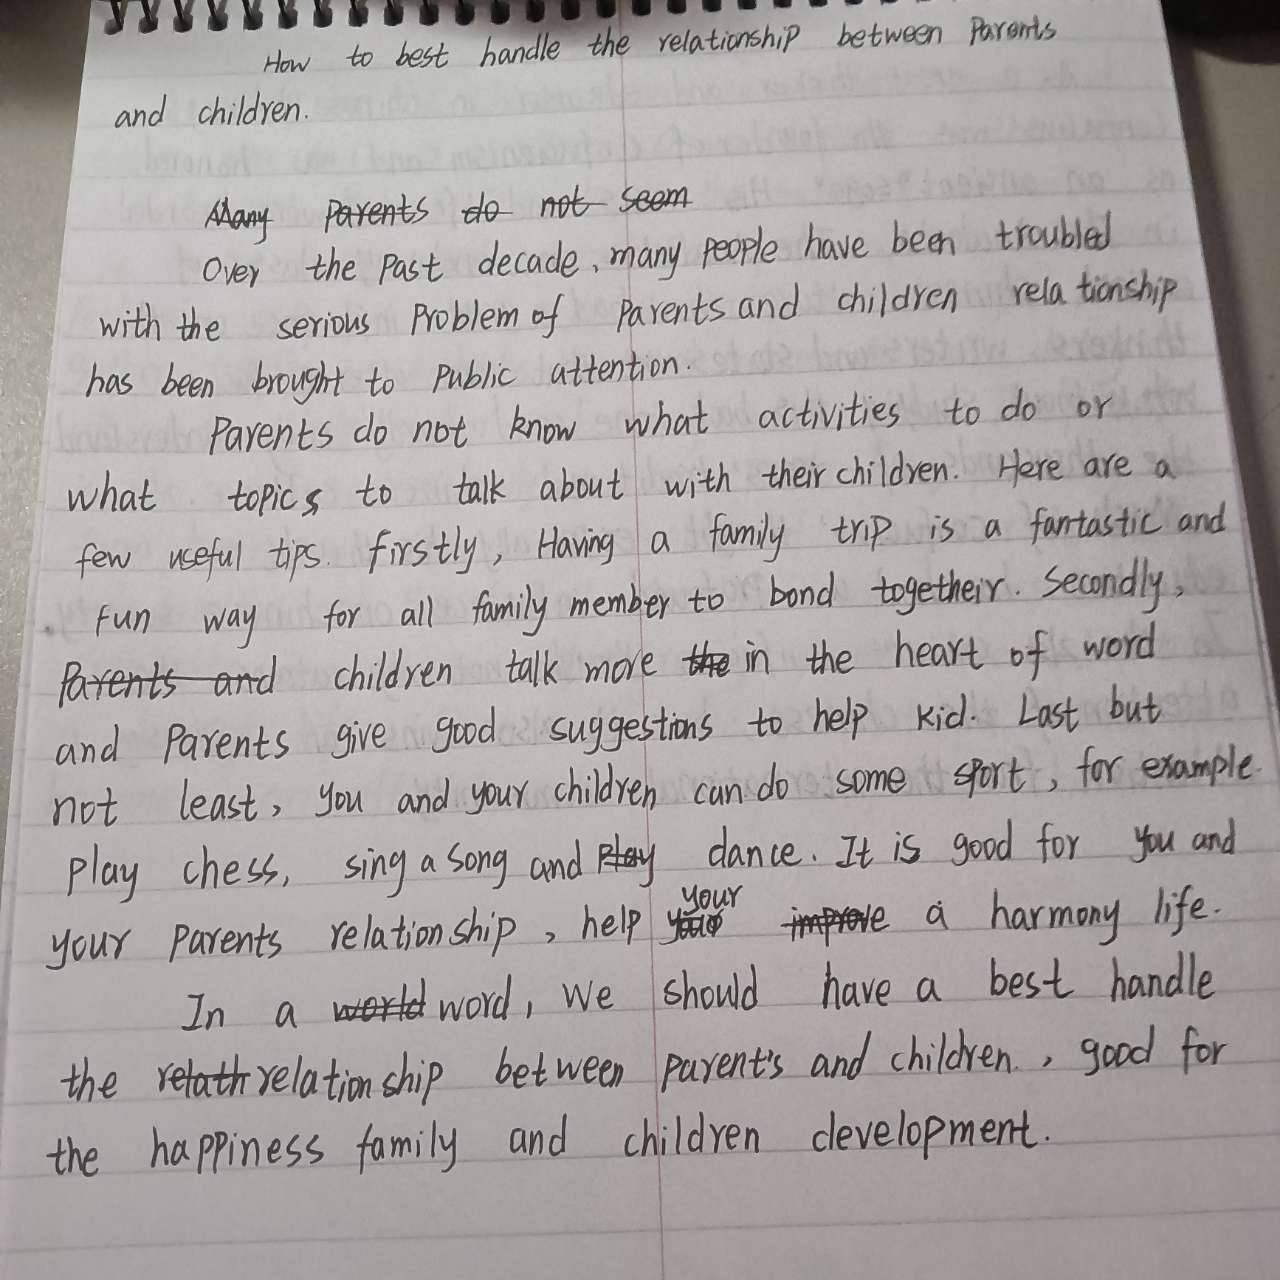 How to best handle the relationship between Parents
and children.
Many Parents do not seem
Over the Past decade, many people have been troubled
with the serious Problem of Parents and children relationship
has been brought to Public attention.
Parents do not know what activities to do or
what topics to talk about with their children. Here are a
few useful tips. firstly, Having a family trip is a fantastic and
fun way for all family member to bond togetheir. Secondly,
Parents and children talk more the in the heart of word
and Parents give good suggestions to help kid. Last but
not least, you and your children can do some sport, for example
play chess, sing a song and play dance. It is good for you and
your parents relationship, help your improve a harmony life.
In a world word, we should have a best handle
the relath relationship between parent's and children, good for
the happiness family and children development.